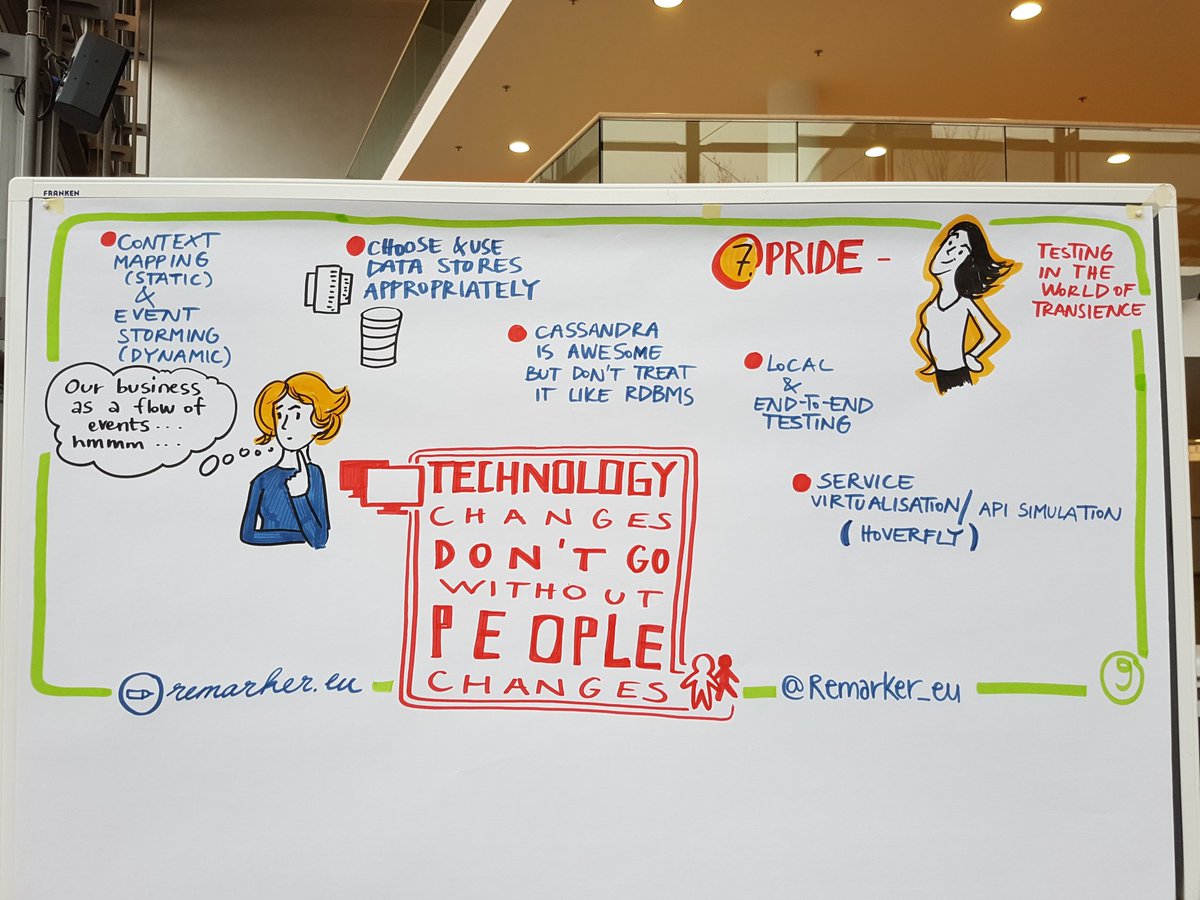 FRANKEN
CONTEXT
MAPPING
(STATIC)
&
EVENT
STORMING
(DYNAMIC)
Our business
as a flow of
events...
hmmm ...
CHOOSE & USE
DATA STORES
APPROPRIATELY
CASSANDRA
IS AWESOME
BUT DON'T TREAT
IT LIKE RDBMS
TECHNOLOGY
CHANGES
DON'T GO
WITHOUT
PEOPLE
CHANGES
7. PRIDE -
TESTING
IN THE
WORLD OF
TRANSIENCE
LOCAL
&
END-TO-END
TESTING
SERVICE
VIRTUALISATION/ API SIMULATION
(HOVERFLY)
remarker.eu
@Remarker_eu
9